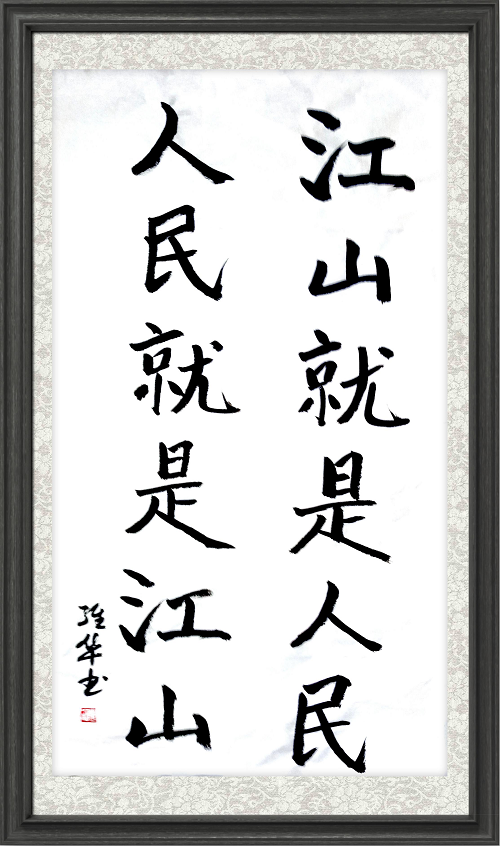 江山就是人民
人民就是江山
维华书